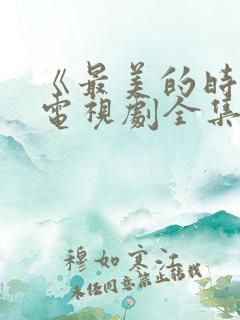 《最美的時
電視劇全集
穆如寒江
未经同意禁止转载